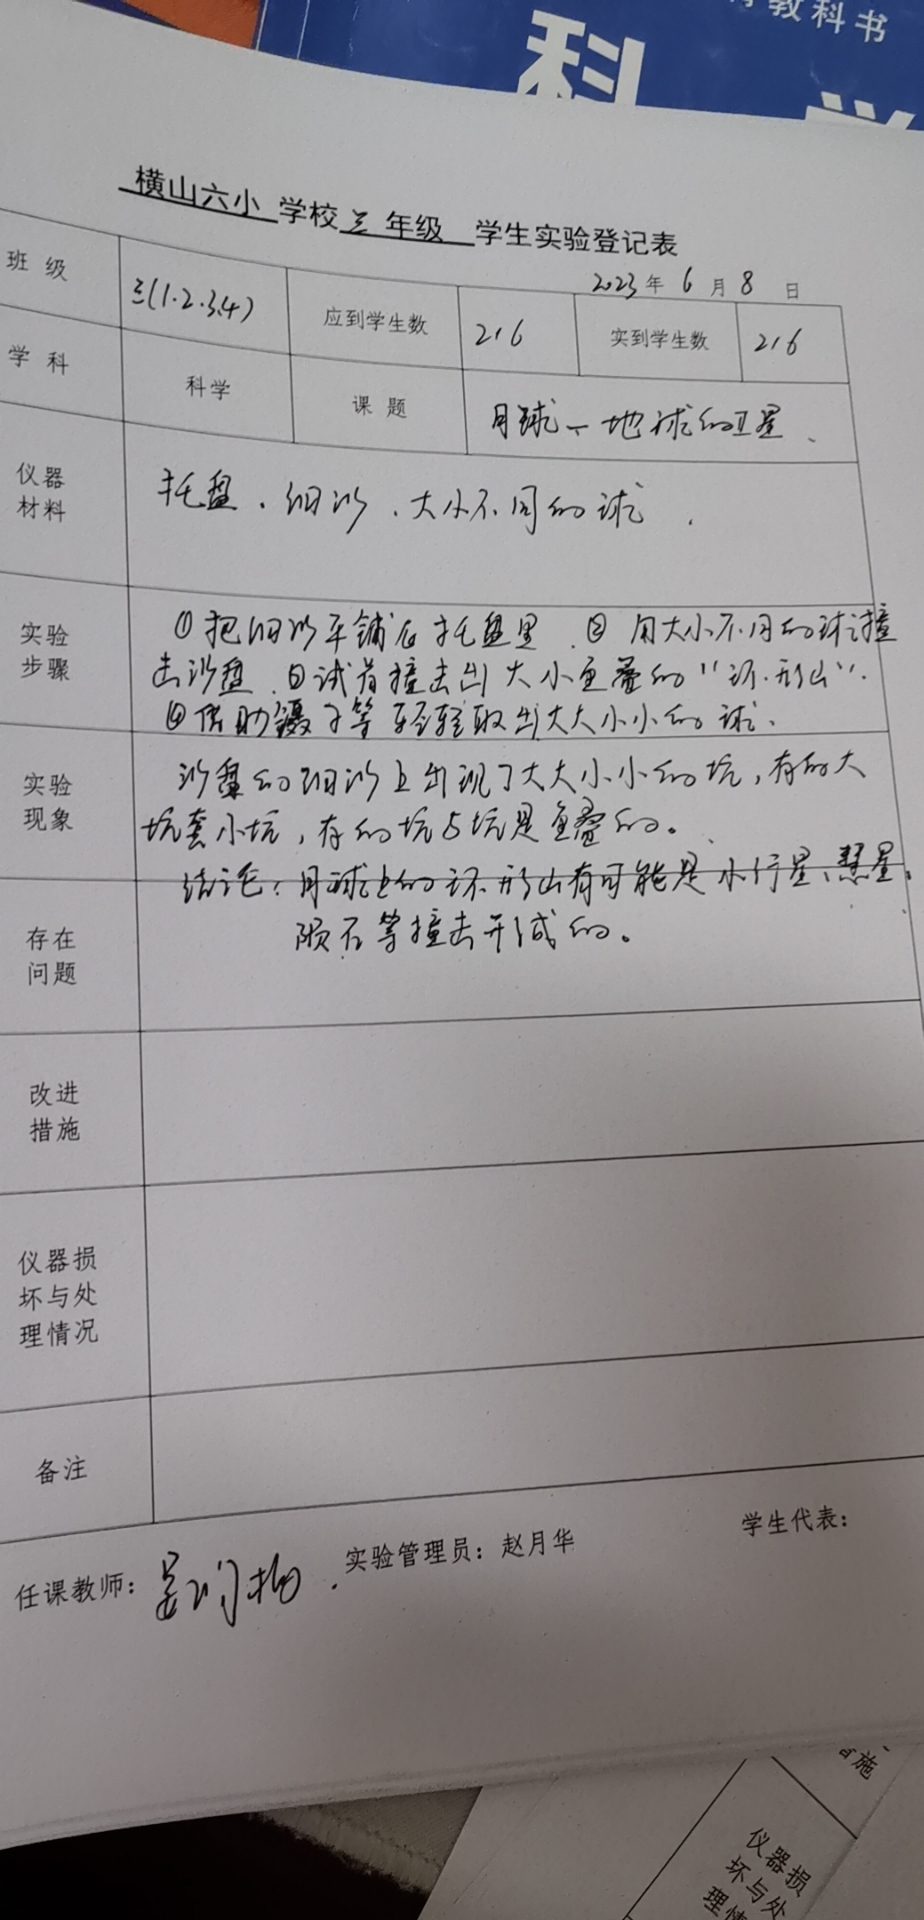 教科书
科 学
横山六小 学校 三 年级 学生实验登记表
2023 年 6 月 8 日
班 级 三(1.2.3.4) 应到学生数 216 实到学生数 216
学 科 科学 课 题 月球——地球的卫星.
仪器
材料
托盘、细沙、大小不同的球.
实验
步骤
①把细沙平铺在托盘里.②用大小不同的球撞
击沙盘.③试着撞击出大小重叠的"环形山".
④借助镊子等轻轻取出大大小小的球.
实验
现象
沙盘的细沙上出现了大大小小的坑,有的大
坑套小坑,有的坑与坑是重叠的。
结论:月球上的环形山有可能是小行星、彗星、
陨石等撞击形成的。
存在
问题
改进
措施
仪器损
坏与处
理情况
备注
任课教师:
实验管理员:赵月华
学生代表:
措施
仪器损
坏与处
理情